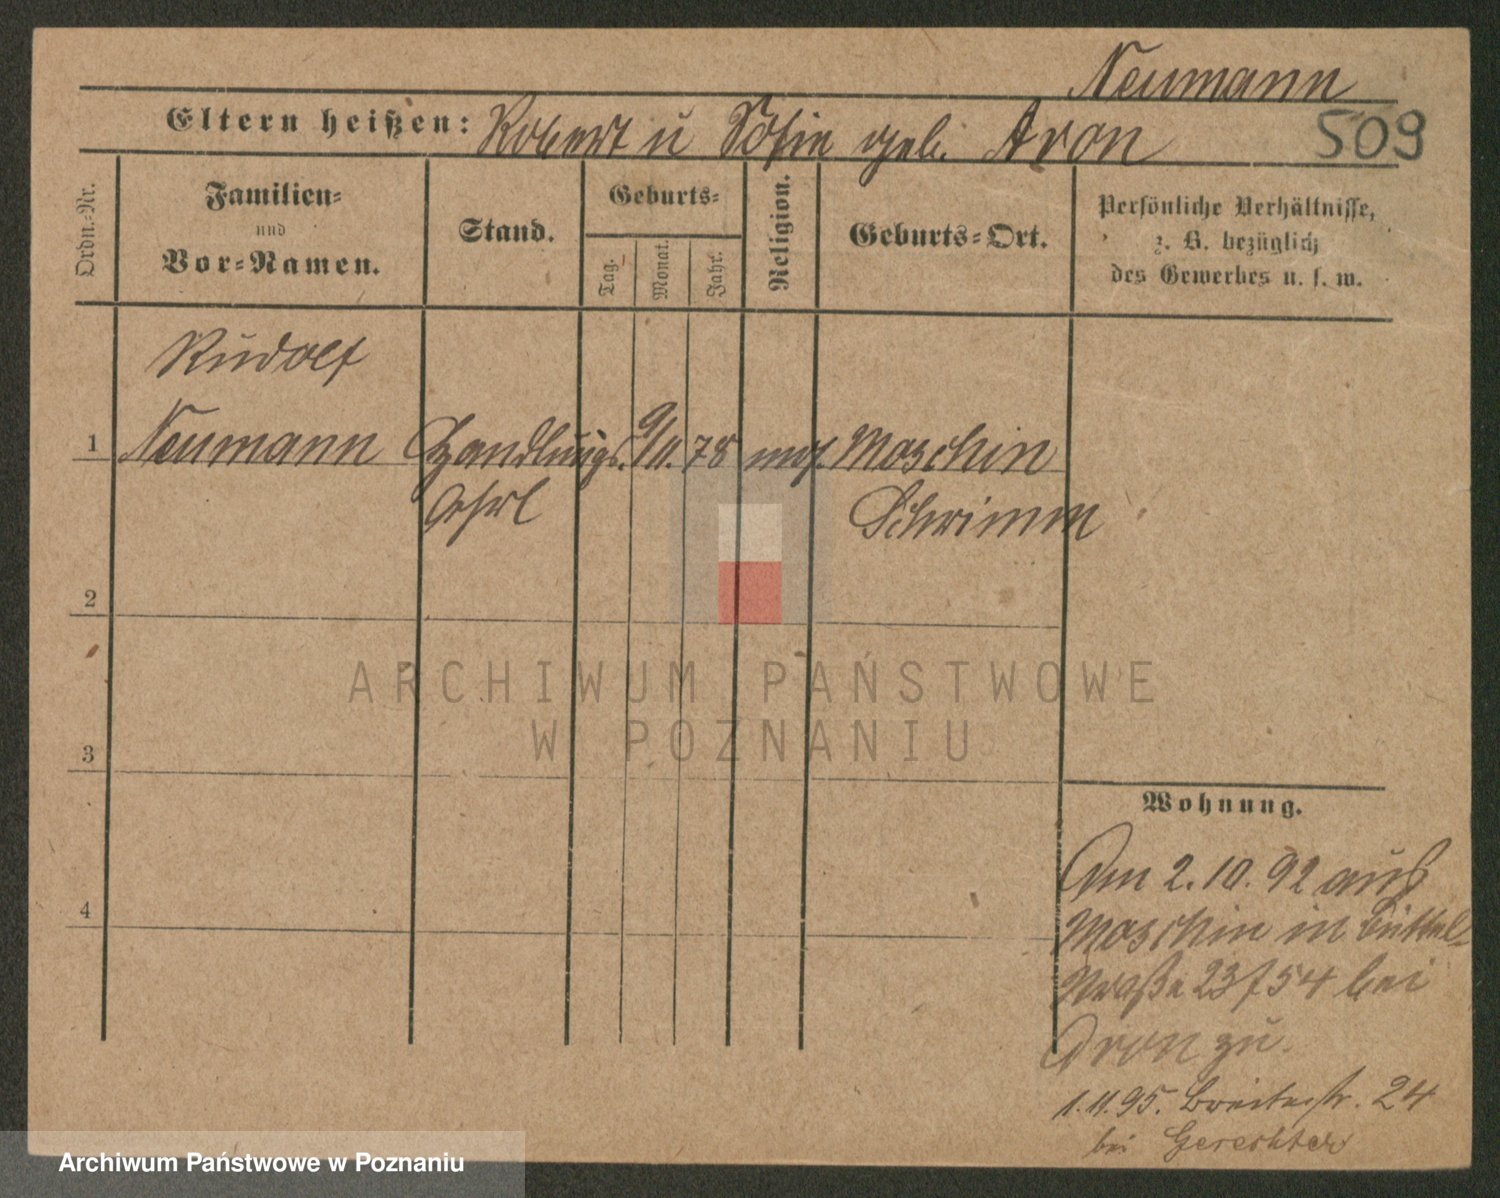 Neumann
Eltern heißen: Robert u Sofie geb. Aron
509
Ordn.-Nr.
Familien-
und
Vor-Namen.
Stand.
Geburts-
Tag.
Monat.
Jahr.
Religion.
Geburts-Ort.
Persönliche Verhältnisse,
z. B. bezüglich
des Gewerbes u. s. w.
Rudolf
1 Neumann Handlungs. 9/11. 78 mos. Moschin
Lehrl Schrimm
2
ARCHIWUM PAŃSTWOWE
W POZNANIU
3
Wohnung.
Am 2.10.92 aus
4
Moschin in Büttel-
straße 23/54 bei
Aron zu.
1.11.95. Breitestr. 24
bei Gerechter
Archiwum Państwowe w Poznaniu